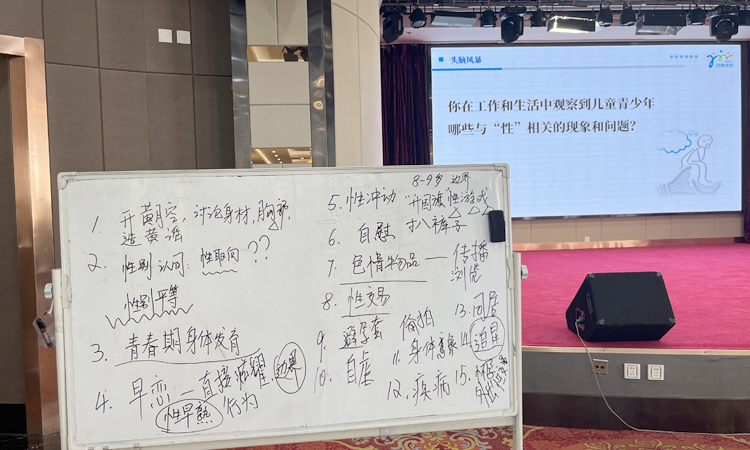 头脑风暴
你在工作和生活中观察到儿童青少年
哪些与“性”相关的现象和问题?
1. 开黄腔,讨论身材,胸部,
造黄谣
2. 性别认同:性取向??
性别平等
3. 青春期身体发育
4. 早恋—直接炫耀,边界
性早熟 行为
8-9岁 边界
5. 性冲动 “升国旗”性游戏
扒裤子
6. 自慰
7. 色情物品——传播
浏览
8. 性交易
9. 避孕套 偷拍
10. 自虐
11. 身体意象
12. 疾病
13. 同居
14. 追星
15.